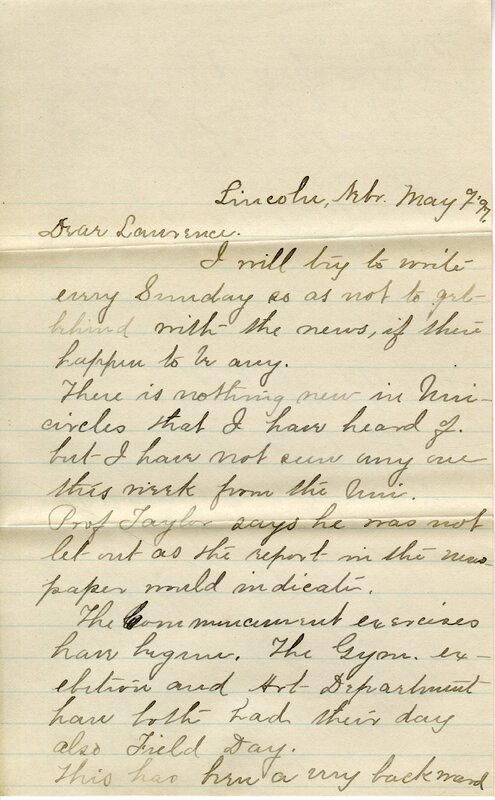 Lincoln, Nebr. May 9. '97.
Dear Lawrence.
I will try to write
every Sunday so as not to get
behind with the news, if there
happen to be any.
There is nothing new in Uni-
circles that I have heard of.
but I have not seen any one
this week from the Uni.
Prof Taylor says he was not
let out as the report in the news-
paper would indicate.
The Commencement exercises
have begun. The Gym. ex-
ebition and Art Department
have both had their day
also Field Day.
This has been a very backward